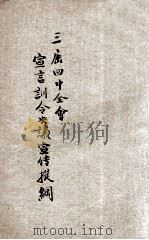 三届四中全會
宣言訓令决議宣传提綱